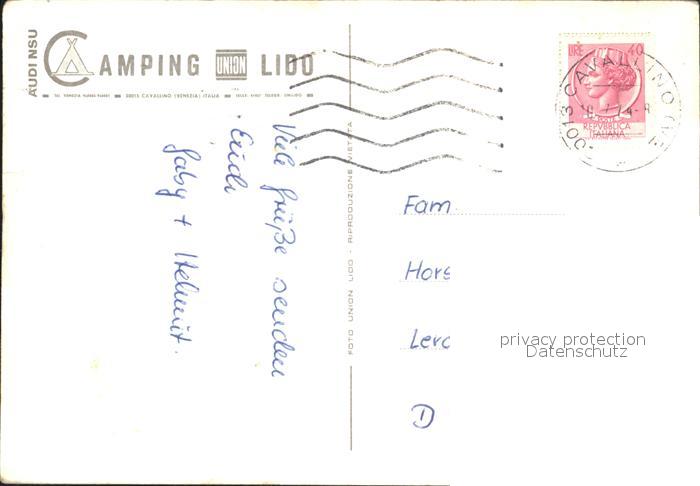 AUDI NSU
CAMPING UNION LIDO
30013 CAVALLINO (VENEZIA) ITALIA
Viele Grüße senden
Euch
Gaby + Helmut.
FOTO UNION LIDO - RIPRODUZIONE VIETATA
LIRE 40
REPVBBLICA
ITALIANA
CAVALLINO (VE)
Fam
Hors
Lerc
D
privacy protection
Datenschutz